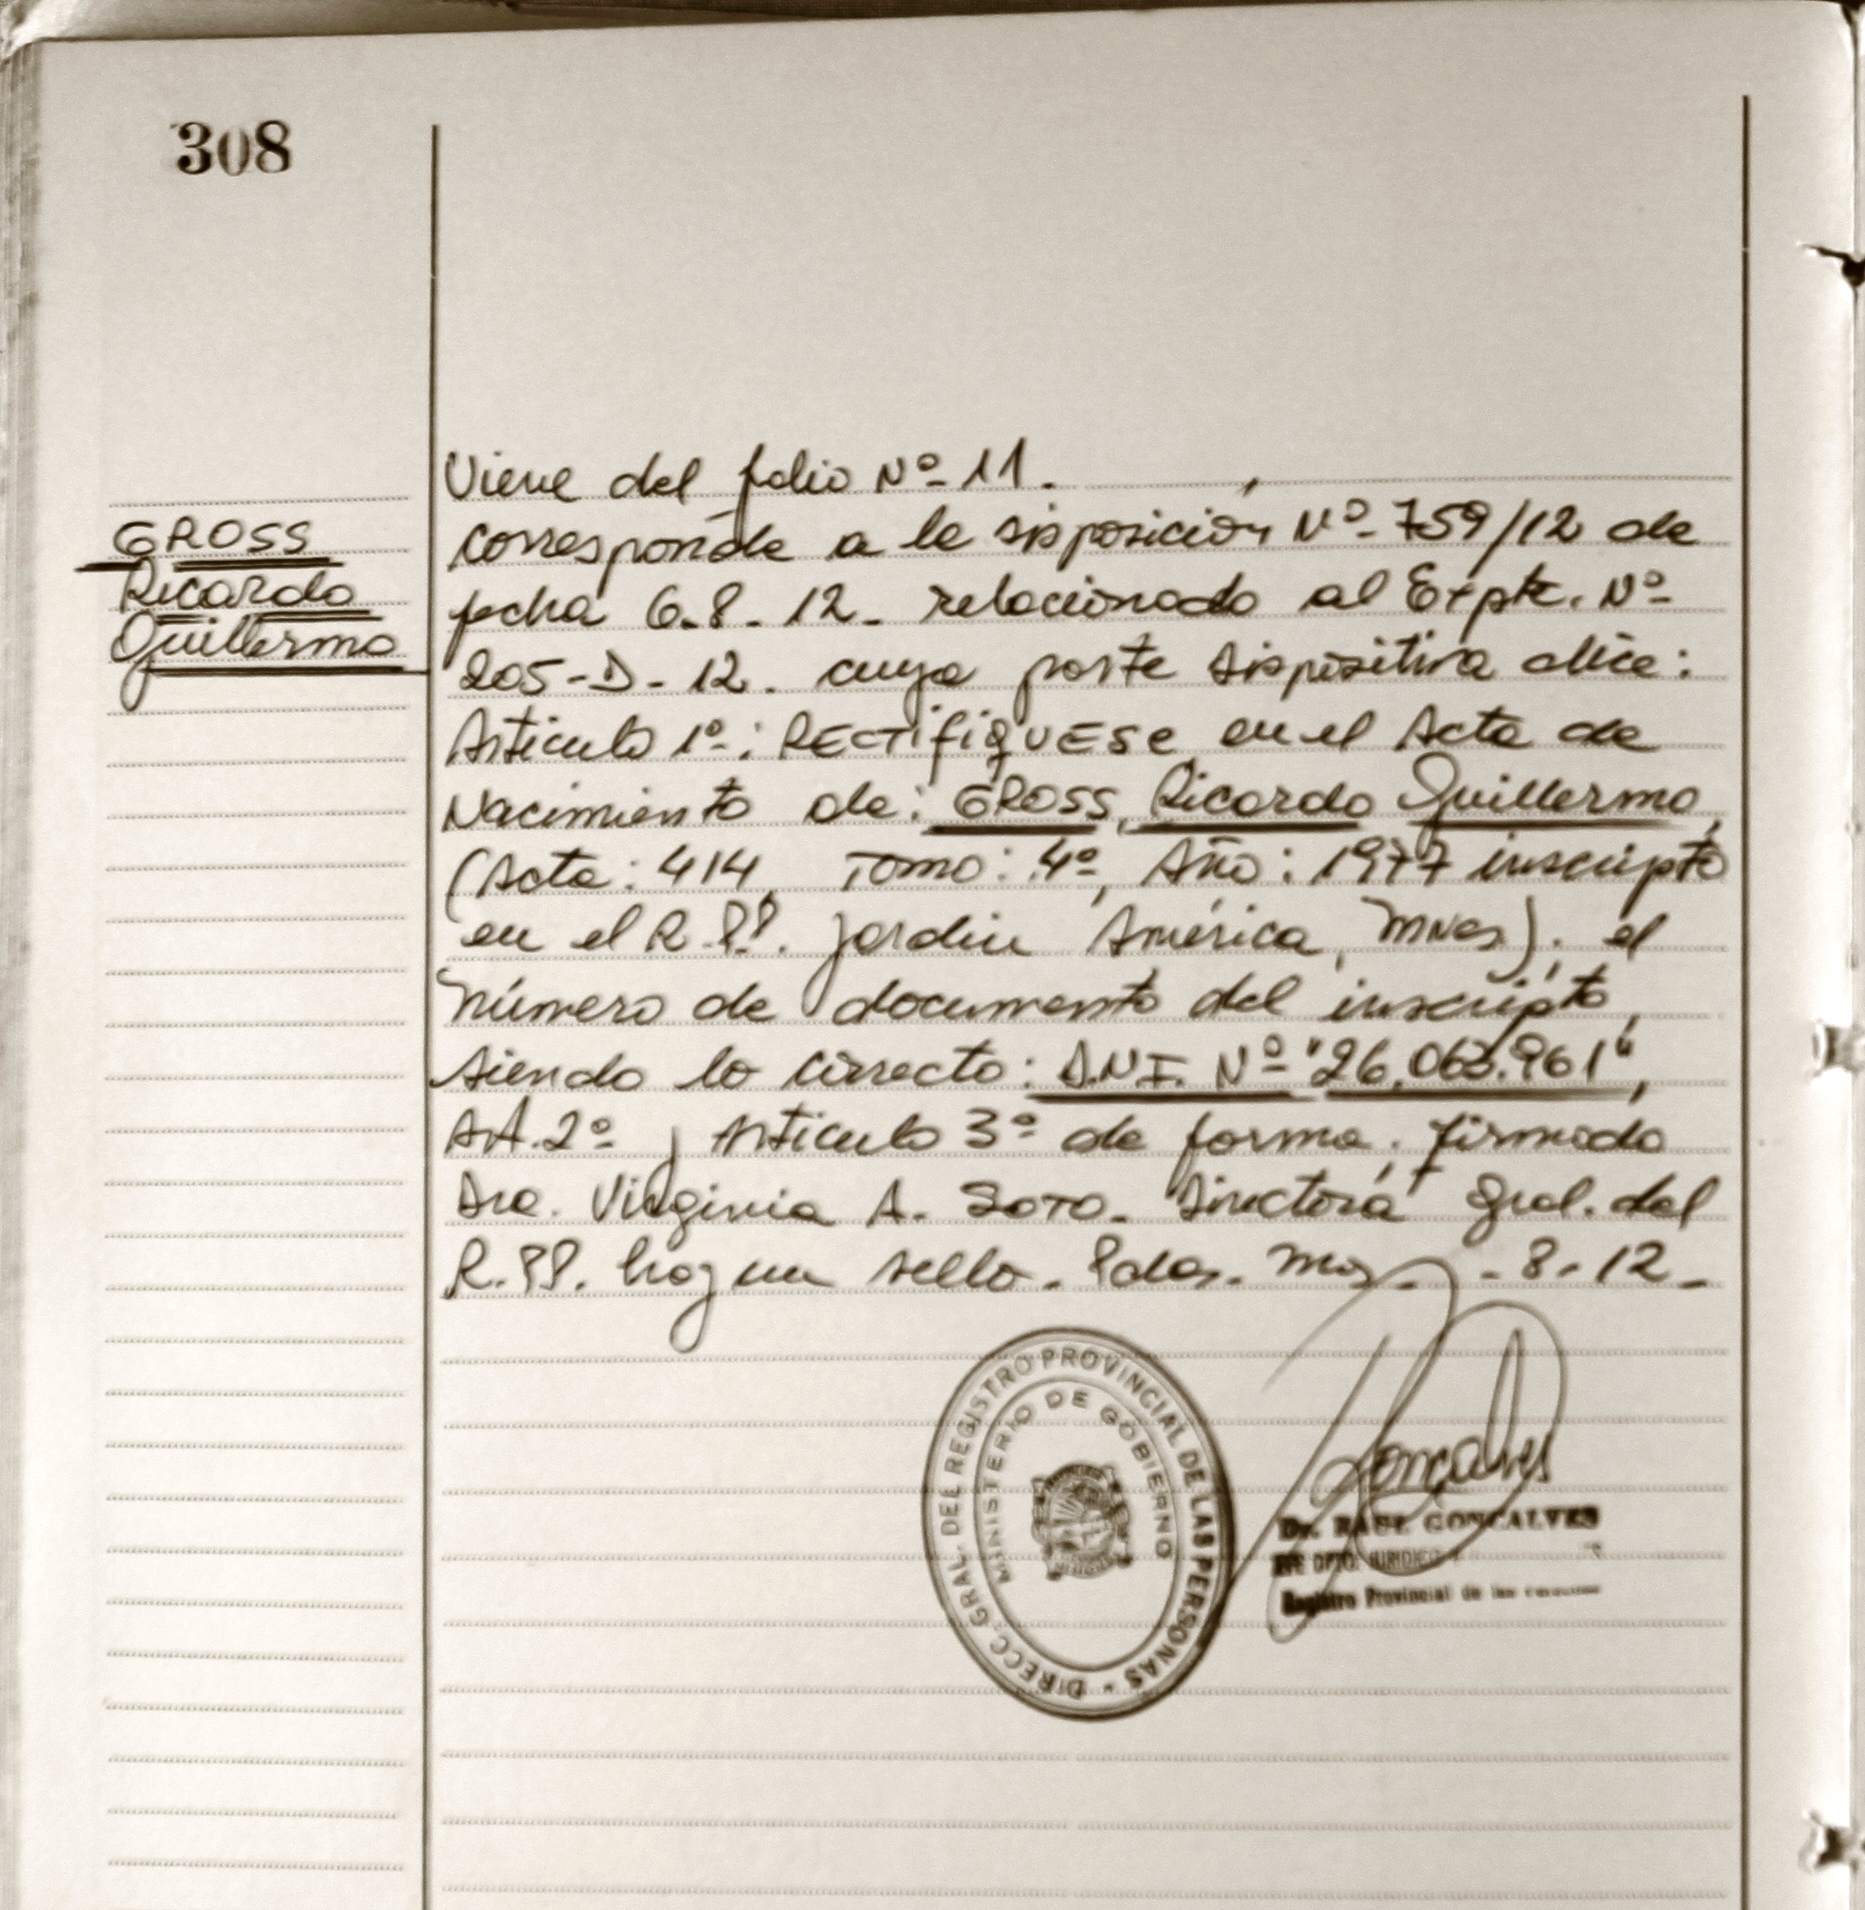 308
GROSS
Ricardo
Guillermo
Viene del folio Nº 11.
corresponde a la disposición Nº 759/12 de
fecha 6-8-12- relacionado al Expte. Nº
205-D-12. cuya parte dispositiva dice:
Artículo 1º: RECTIFIQUESE en el Acta de
Nacimiento de: GROSS, Ricardo Guillermo,
(Acta: 414, Tomo: 4º, Año: 1977 inscripto
en el R.PP. Jardín América, Mnes). el
número de documento del inscripto,
siendo lo correcto: D.N.I. Nº "26.063.961",
Art. 2º y Artículo 3º de forma. firmado
Dra. Virginia A. SOTO- Directora Gral. del
R.PP. hay un sello. Pdas. Mnes. -8-12-
DIRECC. GRAL. DEL REGISTRO PROVINCIAL DE LAS PERSONAS -
MINISTERIO DE GOBIERNO
Gonçalves
Dr. RAUL GONCALVES
JEFE DPTO. JURIDICO
Registro Provincial de las Personas